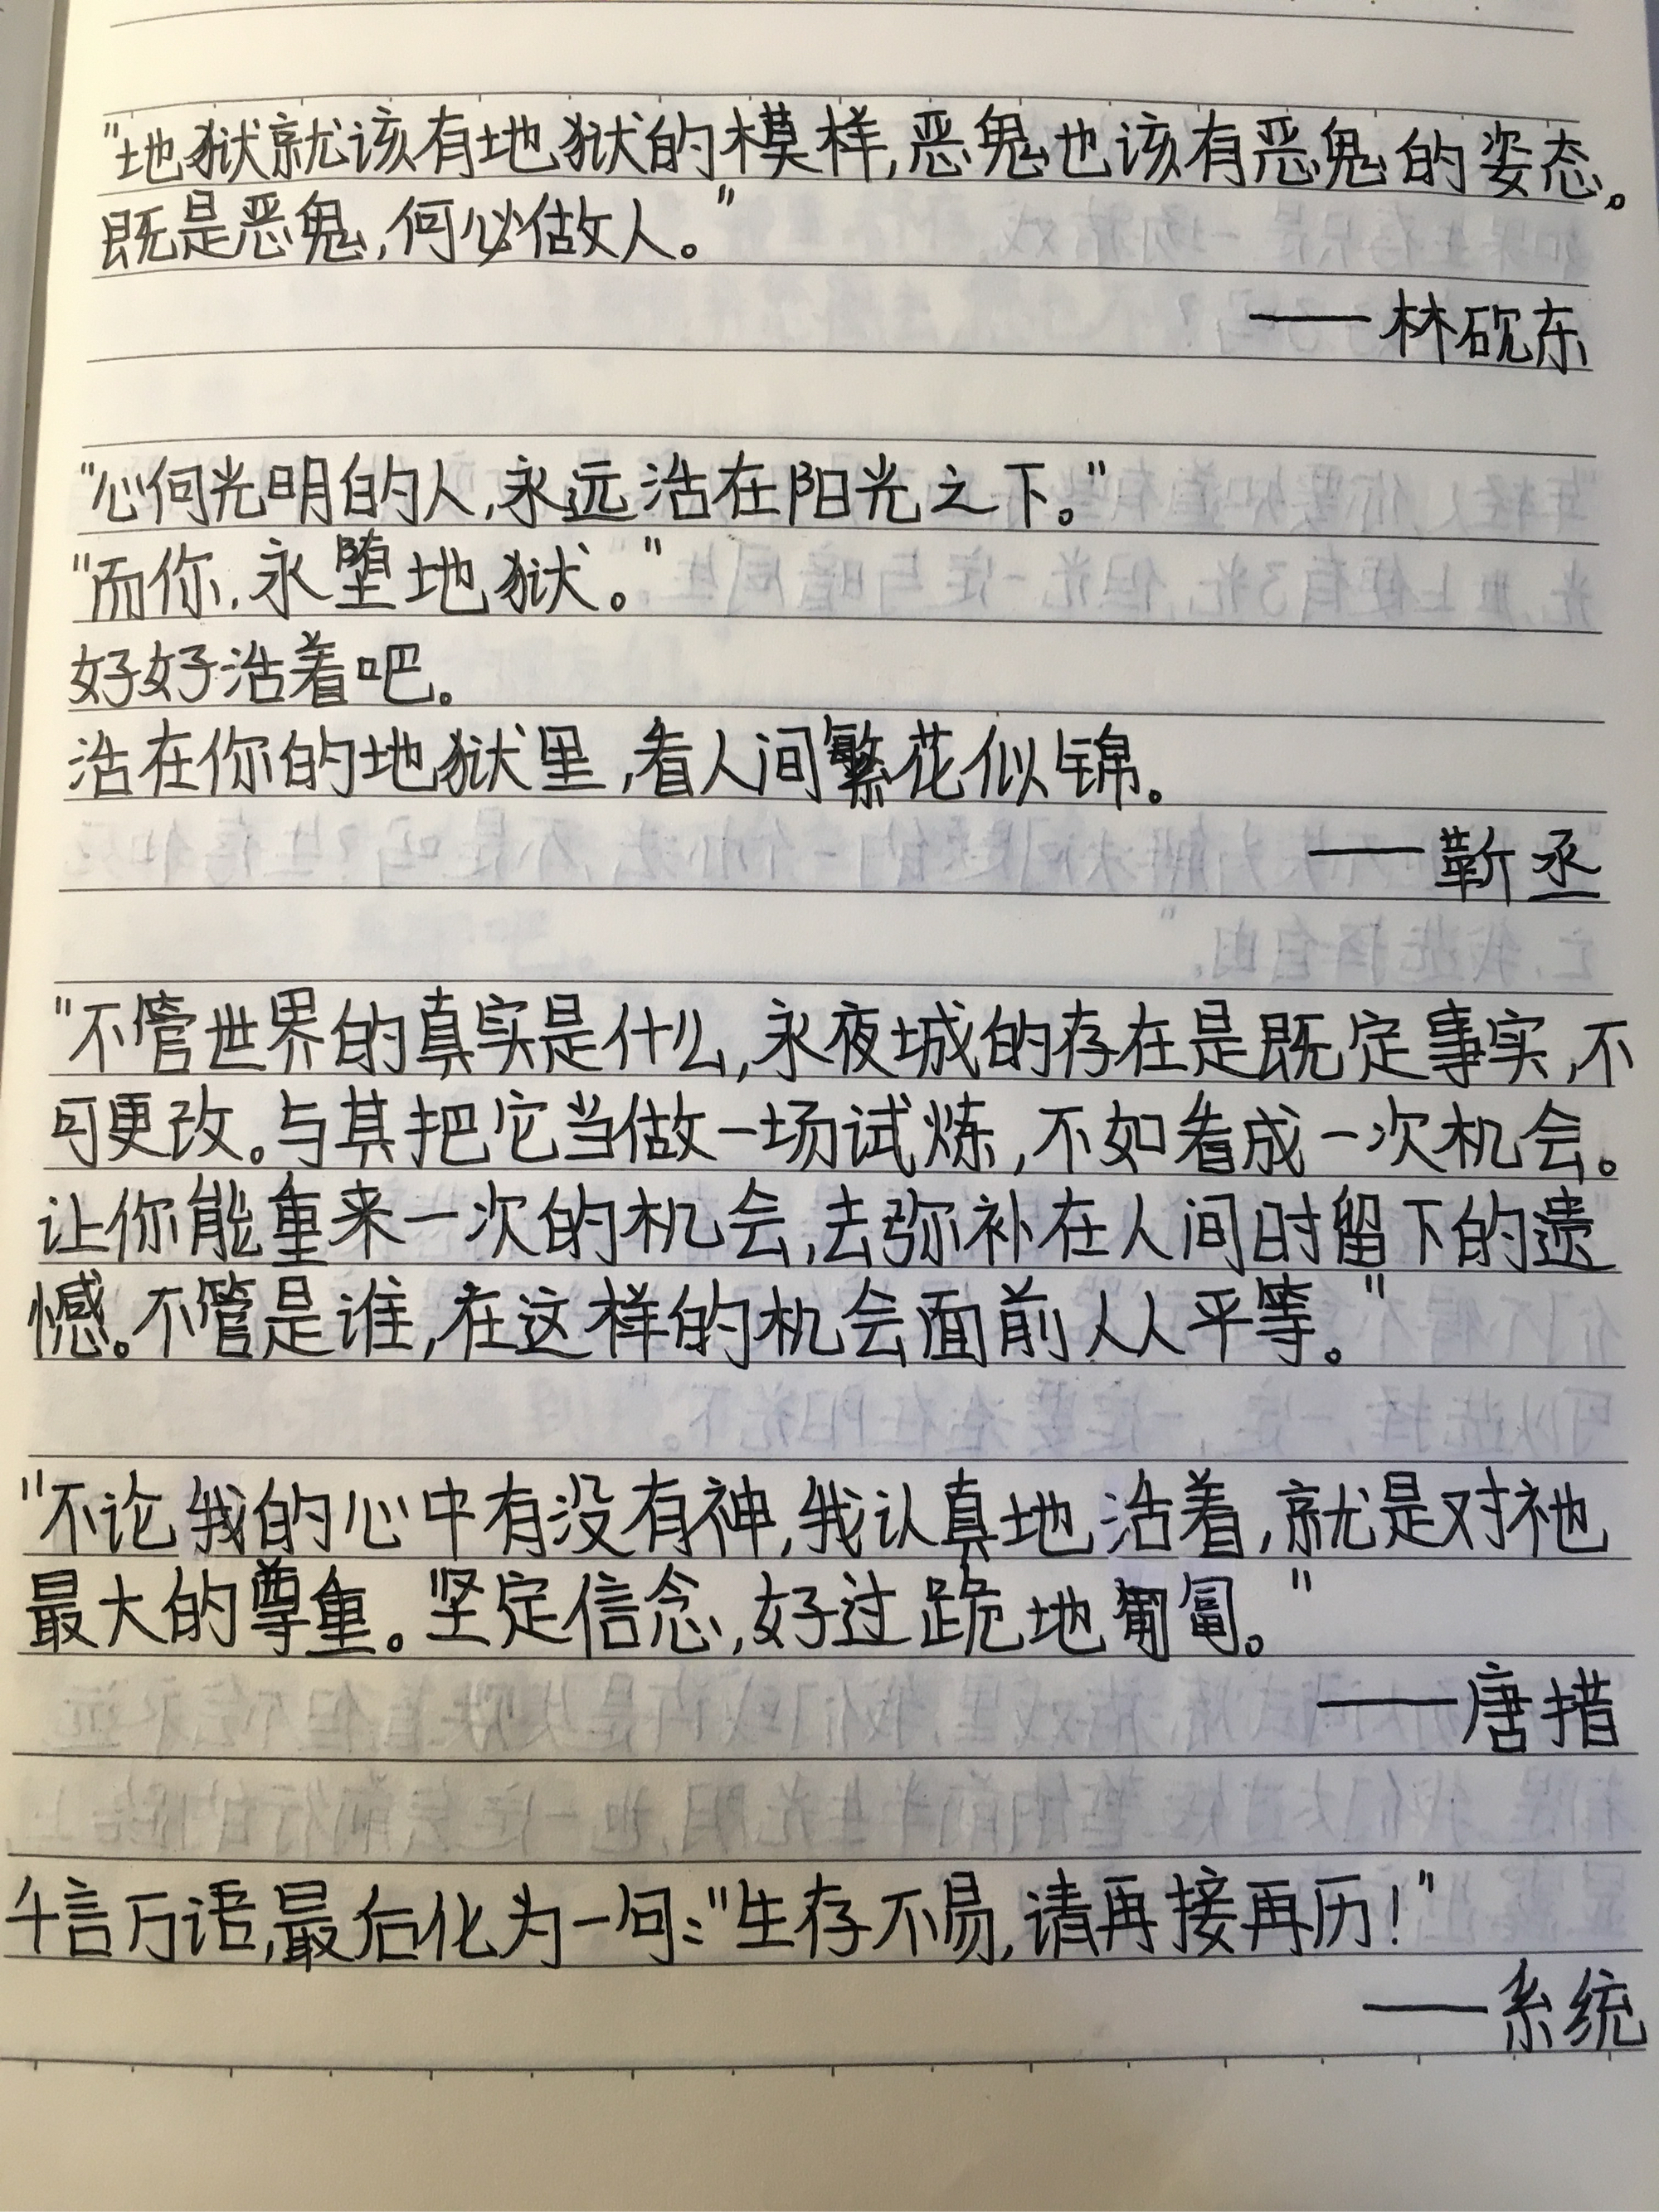 "地狱就该有地狱的模样,恶鬼也该有恶鬼的姿态。
既是恶鬼,何必做人。"
——林砚东
"心向光明的人,永远活在阳光之下。"
"而你,永堕地狱。"
好好活着吧。
活在你的地狱里,看人间繁花似锦。
——靳丞
"不管世界的真实是什么,永夜城的存在是既定事实,不
可更改。与其把它当做一场试炼,不如看成一次机会。
让你能重来一次的机会,去弥补在人间时留下的遗
憾。不管是谁,在这样的机会面前人人平等。"
"不论我的心中有没有神,我认真地活着,就是对祂
最大的尊重。坚定信念,好过跪地匍匐。"
——唐措
千言万语,最后化为一句:"生存不易,请再接再历!"
——系统